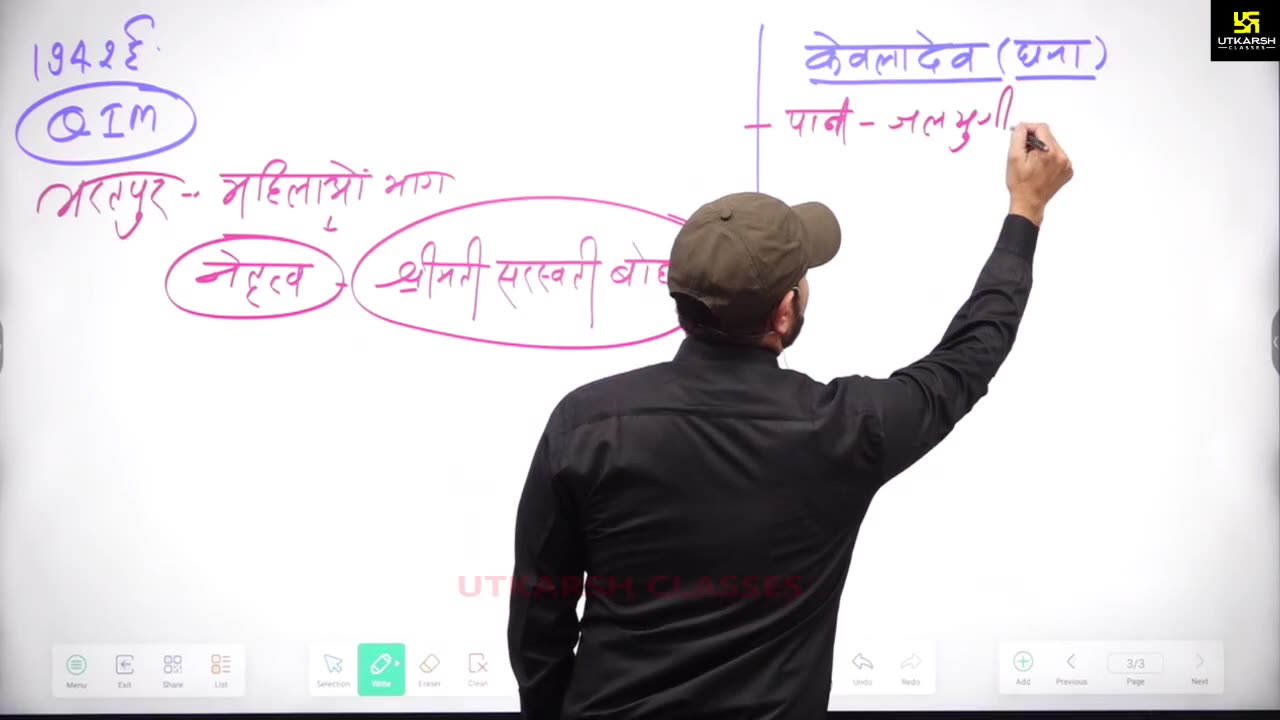 1942ई.
QIM
भरतपुर -- महिलाओं भाग
नेतृत्व - श्रीमती सरस्वती
केवलादेव (घना)
पान - जलमुर्गी
UTKARSH
CLASSES
UTKARSH CLASSES
Menu
Exit
Share
List
Selection
Write
Eraser
Clean
Undo
Redo
Add
Previous
3/3
Page
Next